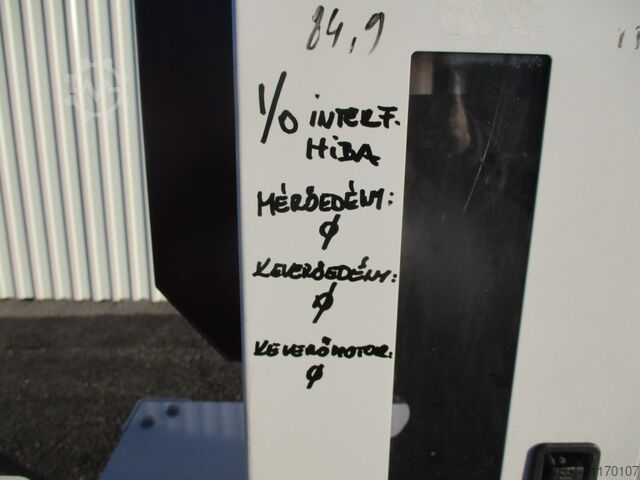 84,9
I/O INTERF.
HIBA
MÉRŐEDÉNY:
Ø
KEVERŐEDÉNY:
Ø
KEVERŐMOTOR:
Ø